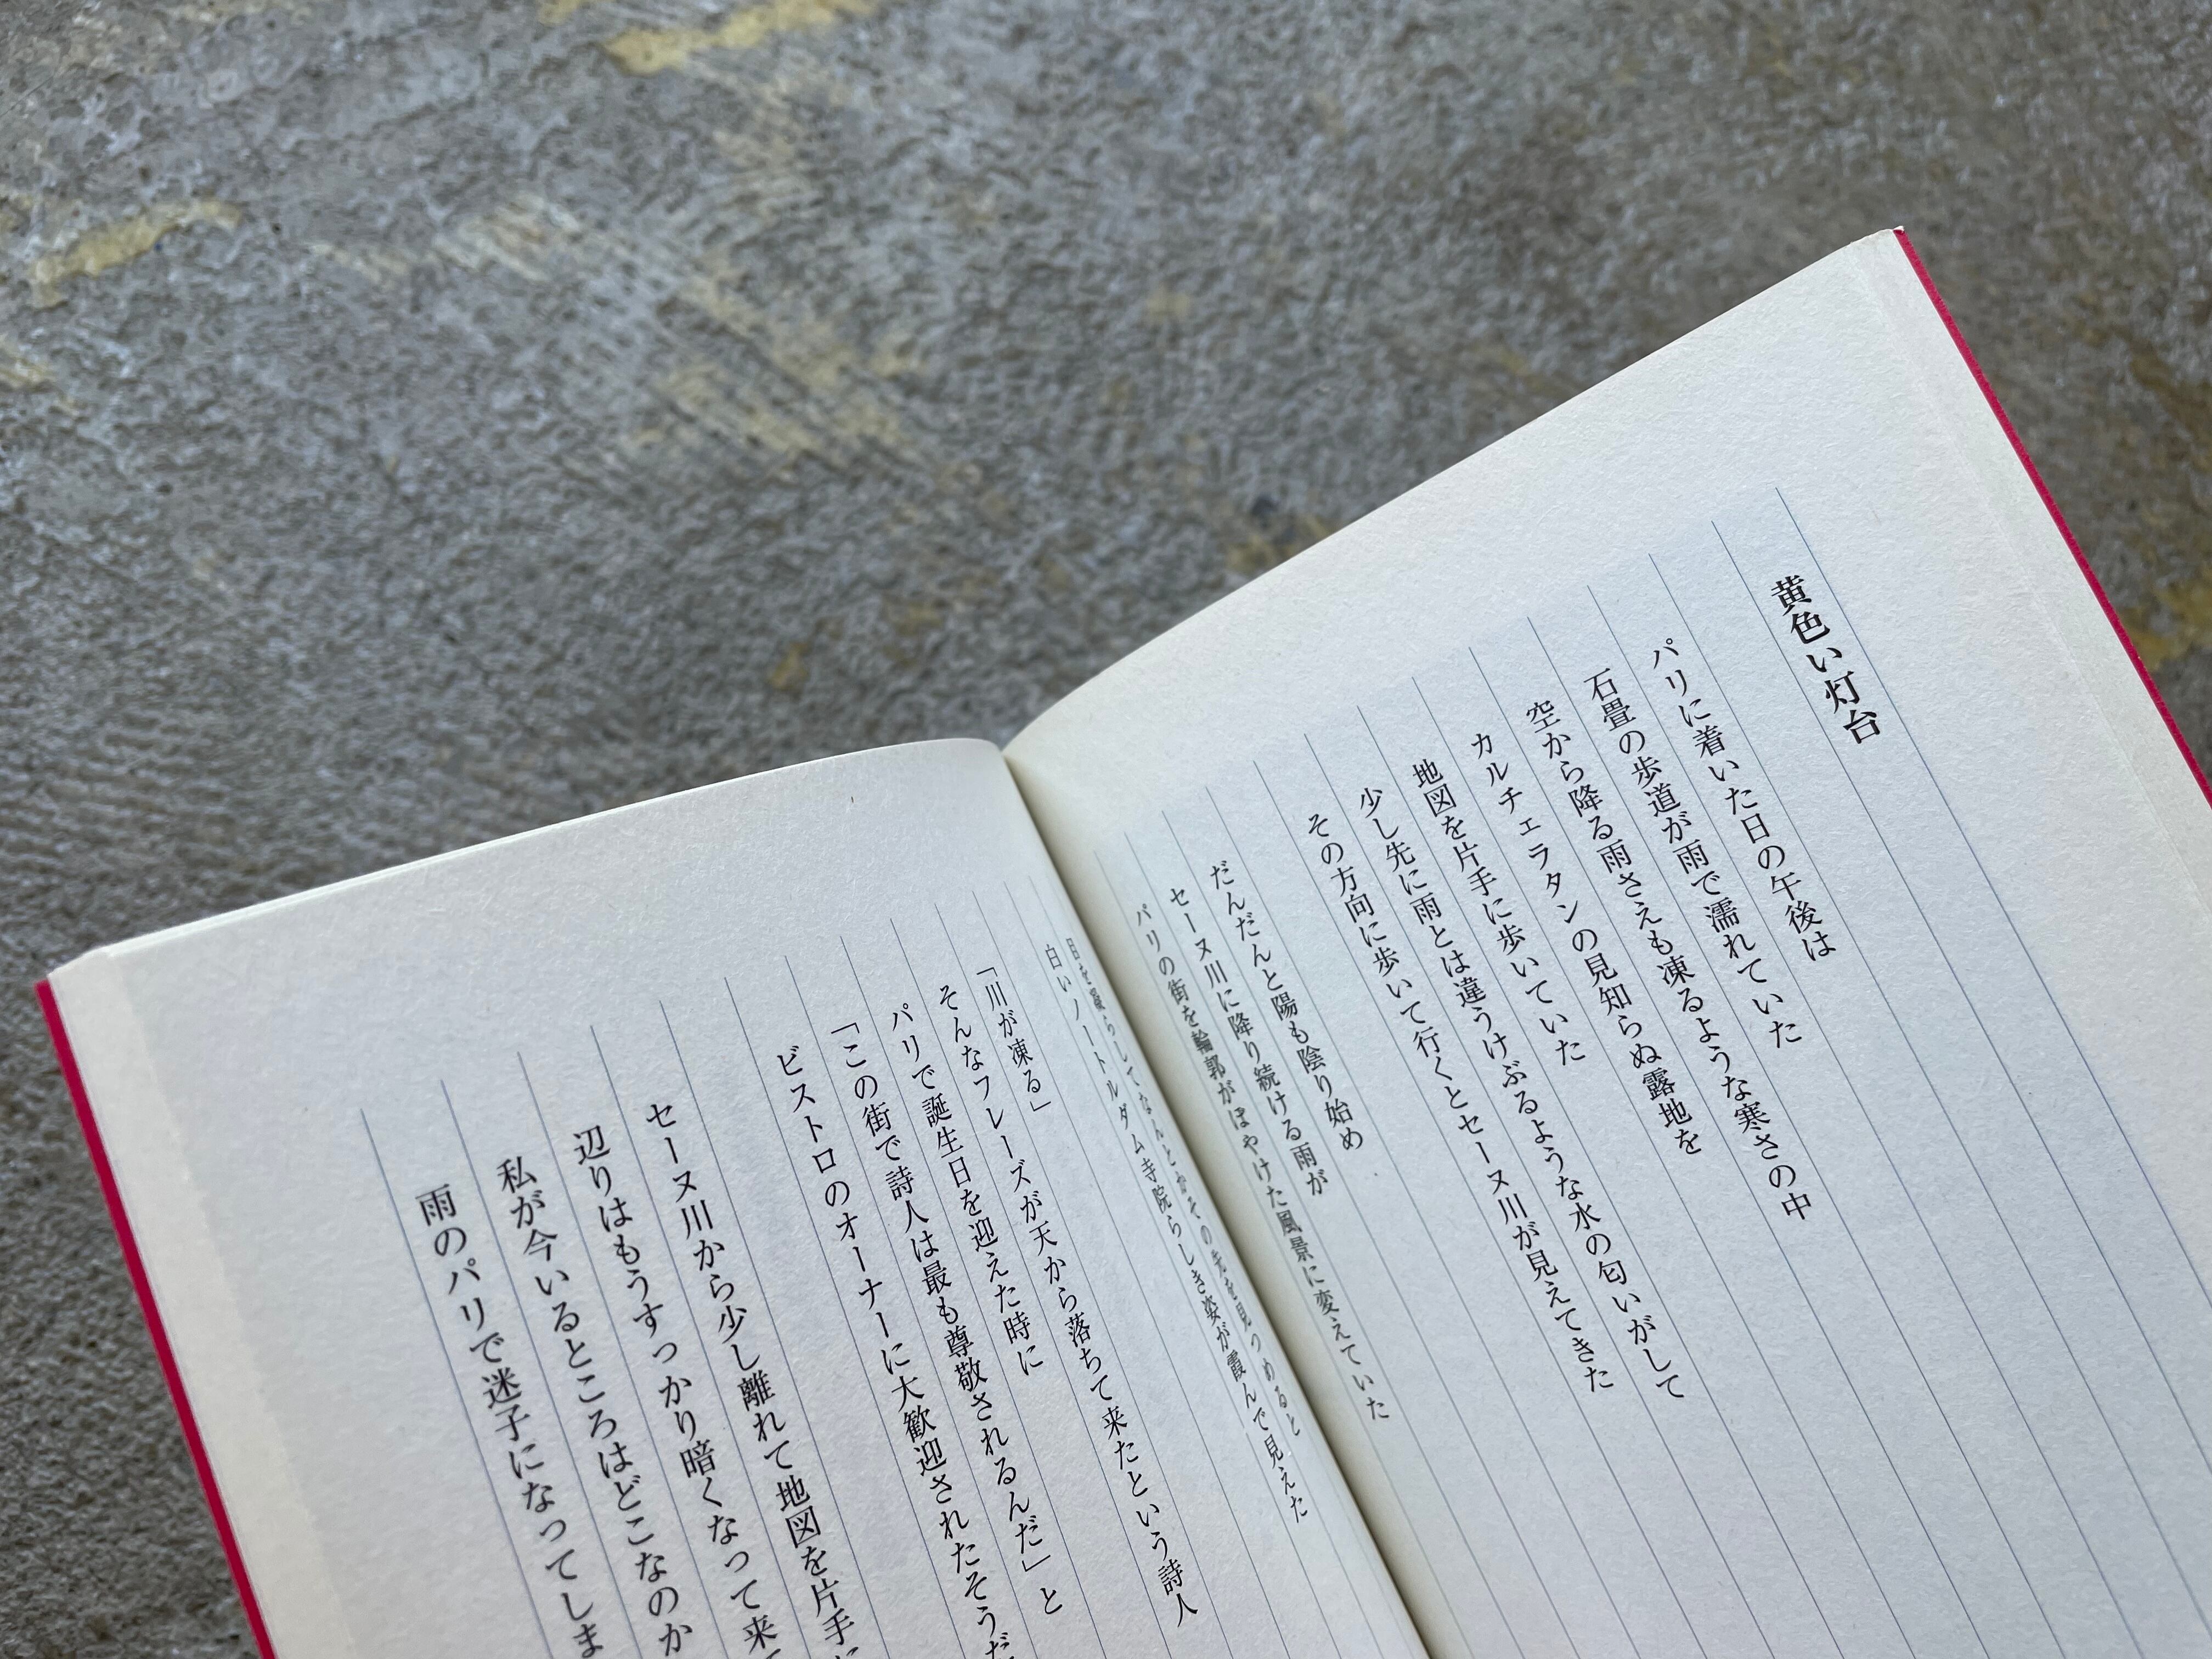 黄色い灯台
パリに着いた日の午後は
石畳の歩道が雨で濡れていた
空から降る雨さえも凍るような寒さの中
カルチェラタンの見知らぬ露地を
地図を片手に歩いていた
少し先に雨とは違うけぶるような水の匂いがして
その方向に歩いて行くとセーヌ川が見えてきた
だんだんと陽も陰り始め
セーヌ川に降り続ける雨が
パリの街を輪郭がぼやけた風景に変えていた
目を凝らしてなんとかその先を見つめると
白いノートルダム寺院らしき姿が霞んで見えた
「川が凍る」
そんなフレーズが天から落ちて来たという詩人
パリで誕生日を迎えた時に
「この街で詩人は最も尊敬されるんだ」と
ビストロのオーナーに大歓迎されたそうだ
セーヌ川から少し離れて地図を片手に
辺りはもうすっかり暗くなって来
私が今いるところはどこなのか
雨のパリで迷子になってしま